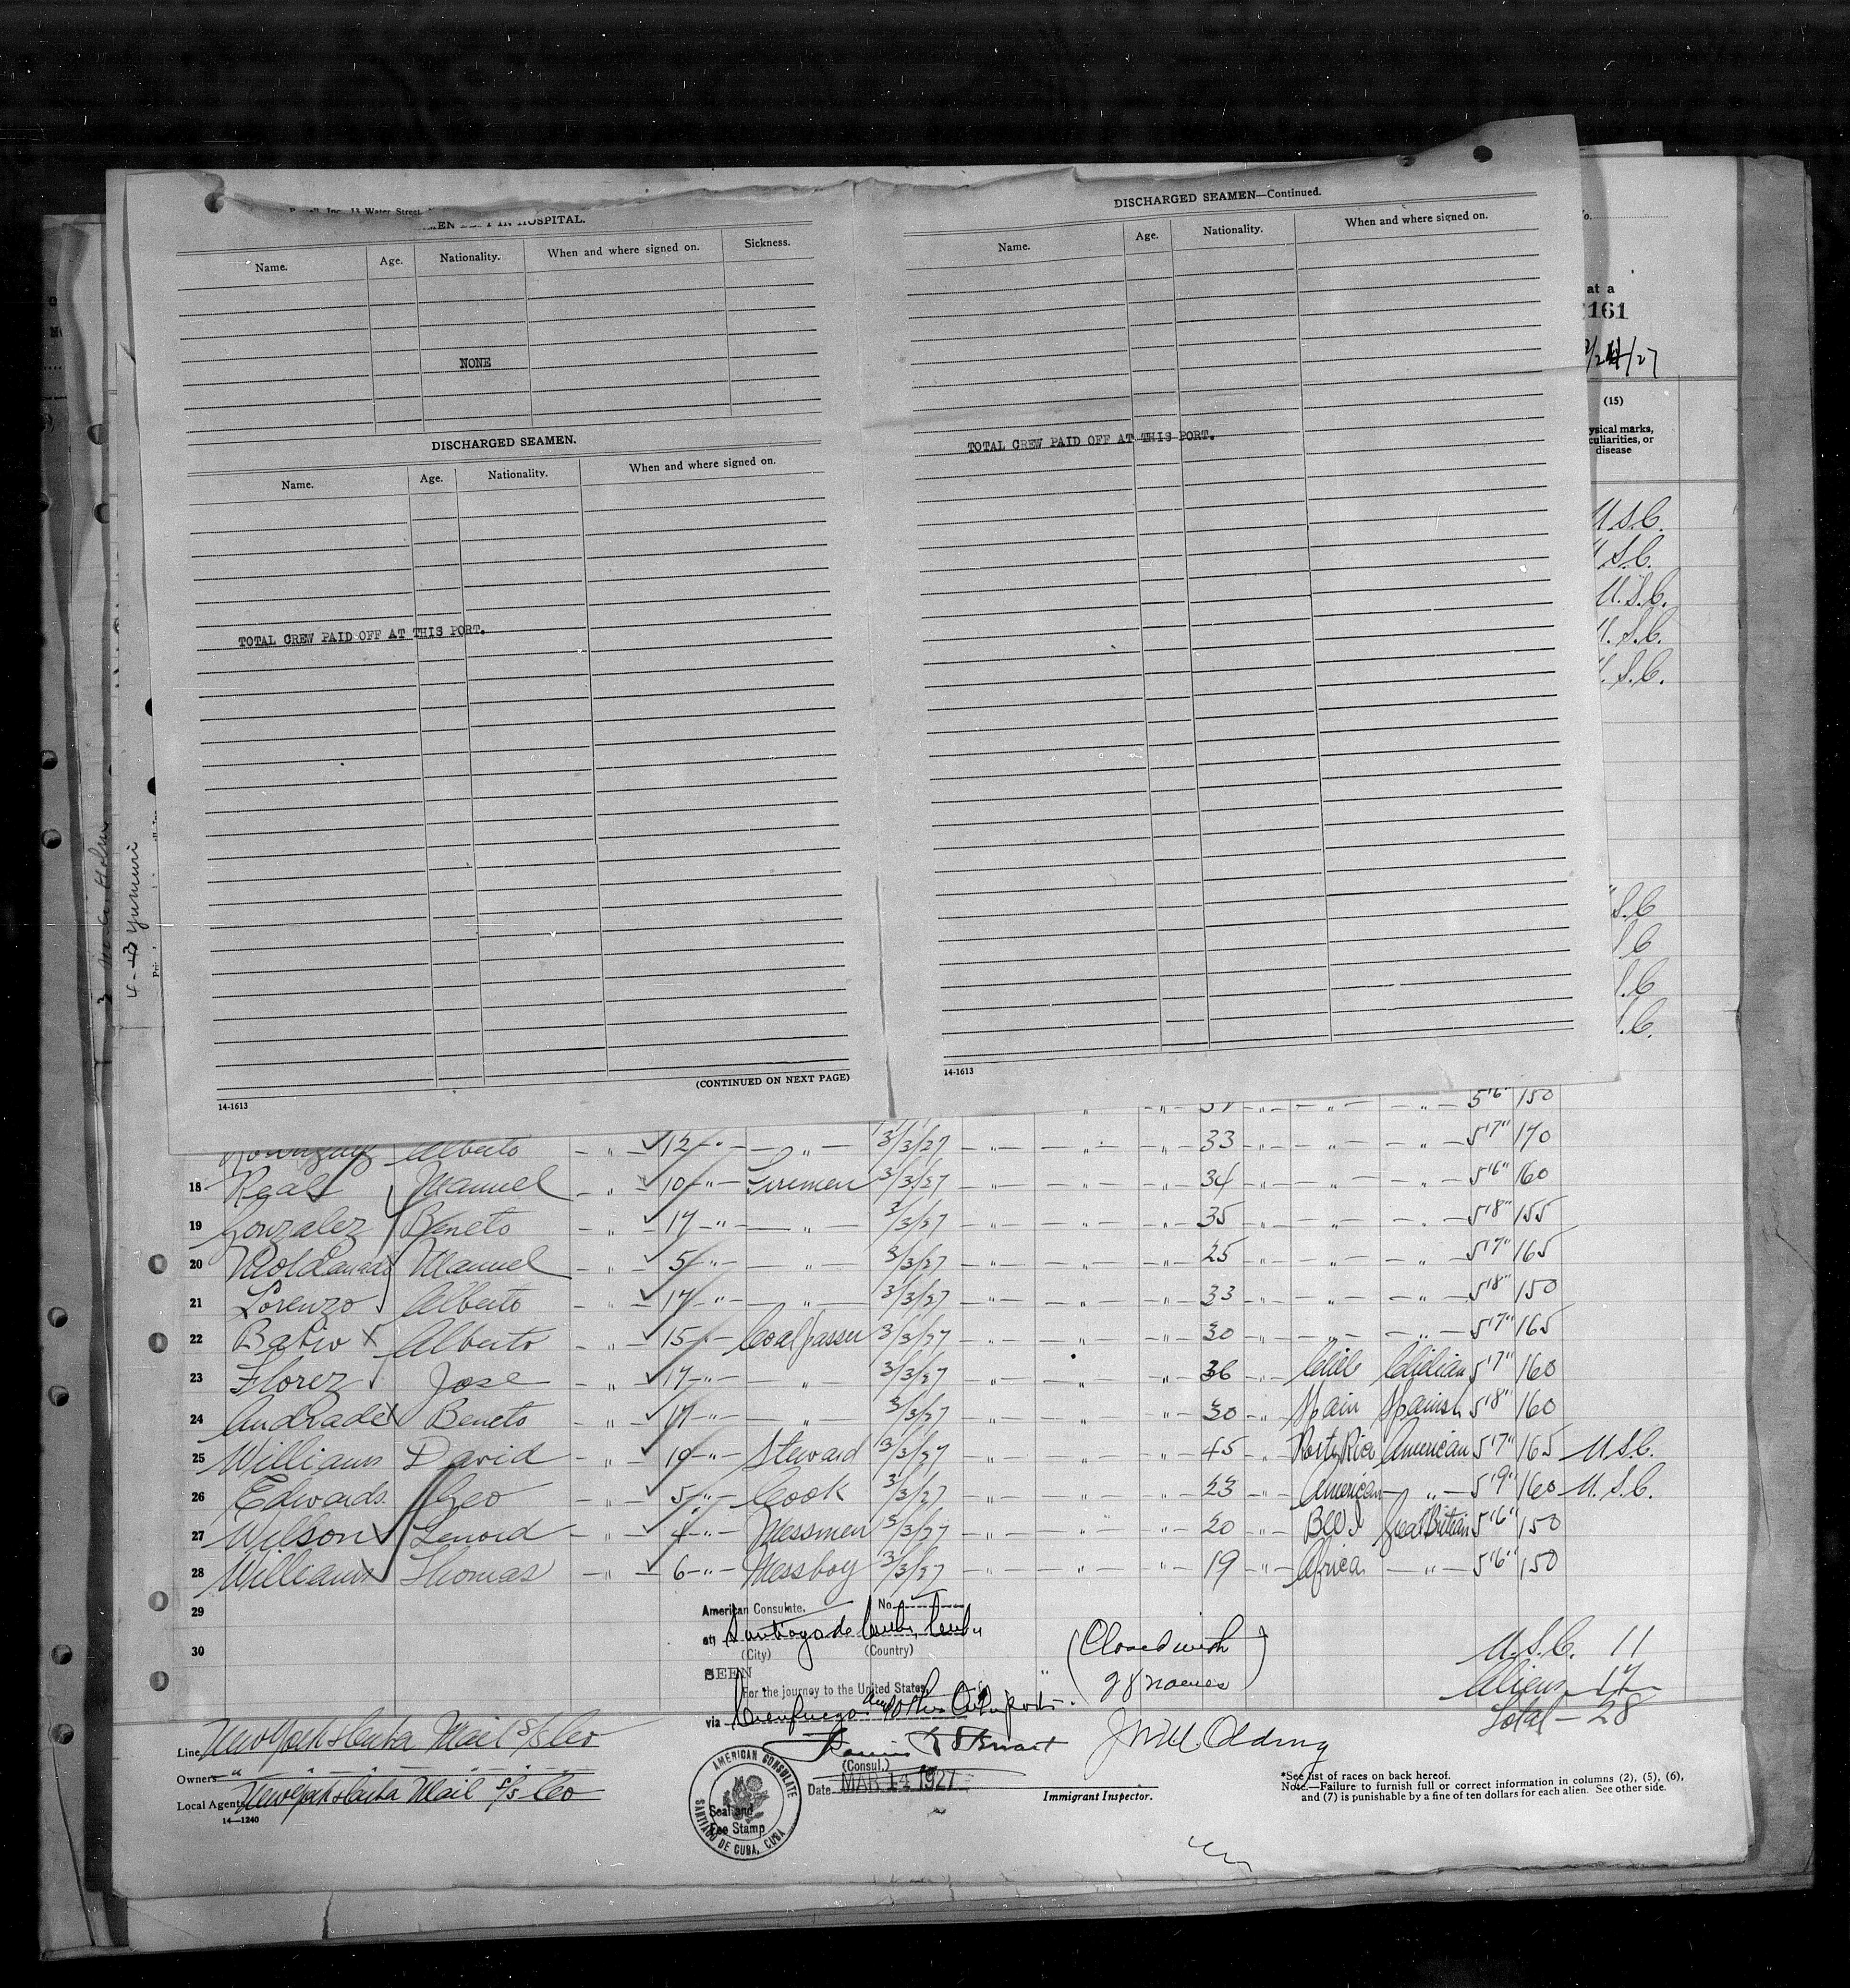 Inc. 11 Water Street,
IN HOSPITAL.
Name. Age. Nationality. When and where signed on. Sickness.
NONE
DISCHARGED SEAMEN.
Name. Age. Nationality. When and where signed on.
TOTAL CREW PAID OFF AT THIS PORT.
(CONTINUED ON NEXT PAGE)
14-1613
DISCHARGED SEAMEN—Continued.
Name. Age. Nationality. When and where signed on.
TOTAL CREW PAID OFF AT THIS PORT.
14-1613
at a
161
(15)
ysical marks,
culiarities, or
disease
U.S.C.
U.S.C.
U.S.C.
U.S.C.
U.S.C.
S.C
S.C
S.C
S.C.
4-13 Yumuri
5'6" 150
Alberto - " - 12 - " - " 3/3/27 - " - " - " - 33 - " - " - " - 5'7" 170
18 Real Manuel - " - 10 - " - Firemen 3/3/27 - " - " - " - 34 - " - " - " - 5'6" 160
19 Gonzalez Beneto - " - 17 - " - " 3/3/27 - " - " - " - 35 - " - " - " - 5'8" 155
20 Manuel - " - 5 - " - " 3/3/27 - " - " - " - 25 - " - " - " - 5'7" 165
21 Lorenzo Alberto - " - 17 - " - " 3/3/27 - " - " - " - 33 - " - " - " - 5'8" 150
22 Alberto - " - 15 - " - Coal passer 3/3/27 - " - " - " - 30 - " - " - " - 5'7" 165
23 Florez Jose - " - 17 - " - " 3/3/27 - " - " - " - 36 - " - Chile Chilian 5'7" 160
24 Andrade X Beneto - " - 17 - " - " 3/3/27 - " - " - " - 30 - " - Spain Spanish 5'8" 160
25 Williams David - " - 19 - " - Steward 3/3/27 - " - " - " - 45 - " - Porto Rico American 5'7" 165 U.S.C.
26 Edwards Geo - " - 5 - " - Cook 3/3/27 - " - " - " - 23 - " - American - " - 5'9" 160 U.S.C.
27 Wilson Lenord - " - 4 - " - Messmen 3/3/27 - " - " - " - 20 - " - B.W.I Great Britian 5'6" 150
28 Williams Thomas - " - 6 - " - Messboy 3/3/27 - " - " - " - 19 - " - Africa - " - 5'6" 150
29
30
American Consulate. No.
at Santiago de Cuba, Cuba
(City) (Country)
SEEN
For the journey to the United States,
via Cienfuegos and other Cuban ports.
(Consul.)
Date MAR 14 1927
(Closed with
28 names)
U.S.C. 11
Aliens 17
Total - 28
Line New York & Cuba Mail S/S Co
Owners "
Local Agents New York & Cuba Mail S/S Co
14—1240
AMERICAN CONSULATE
SANTIAGO DE CUBA, CUBA
Seal and
Fee Stamp
Immigrant Inspector.
*See list of races on back hereof.
Note.—Failure to furnish full or correct information in columns (2), (5), (6),
and (7) is punishable by a fine of ten dollars for each alien. See other side.